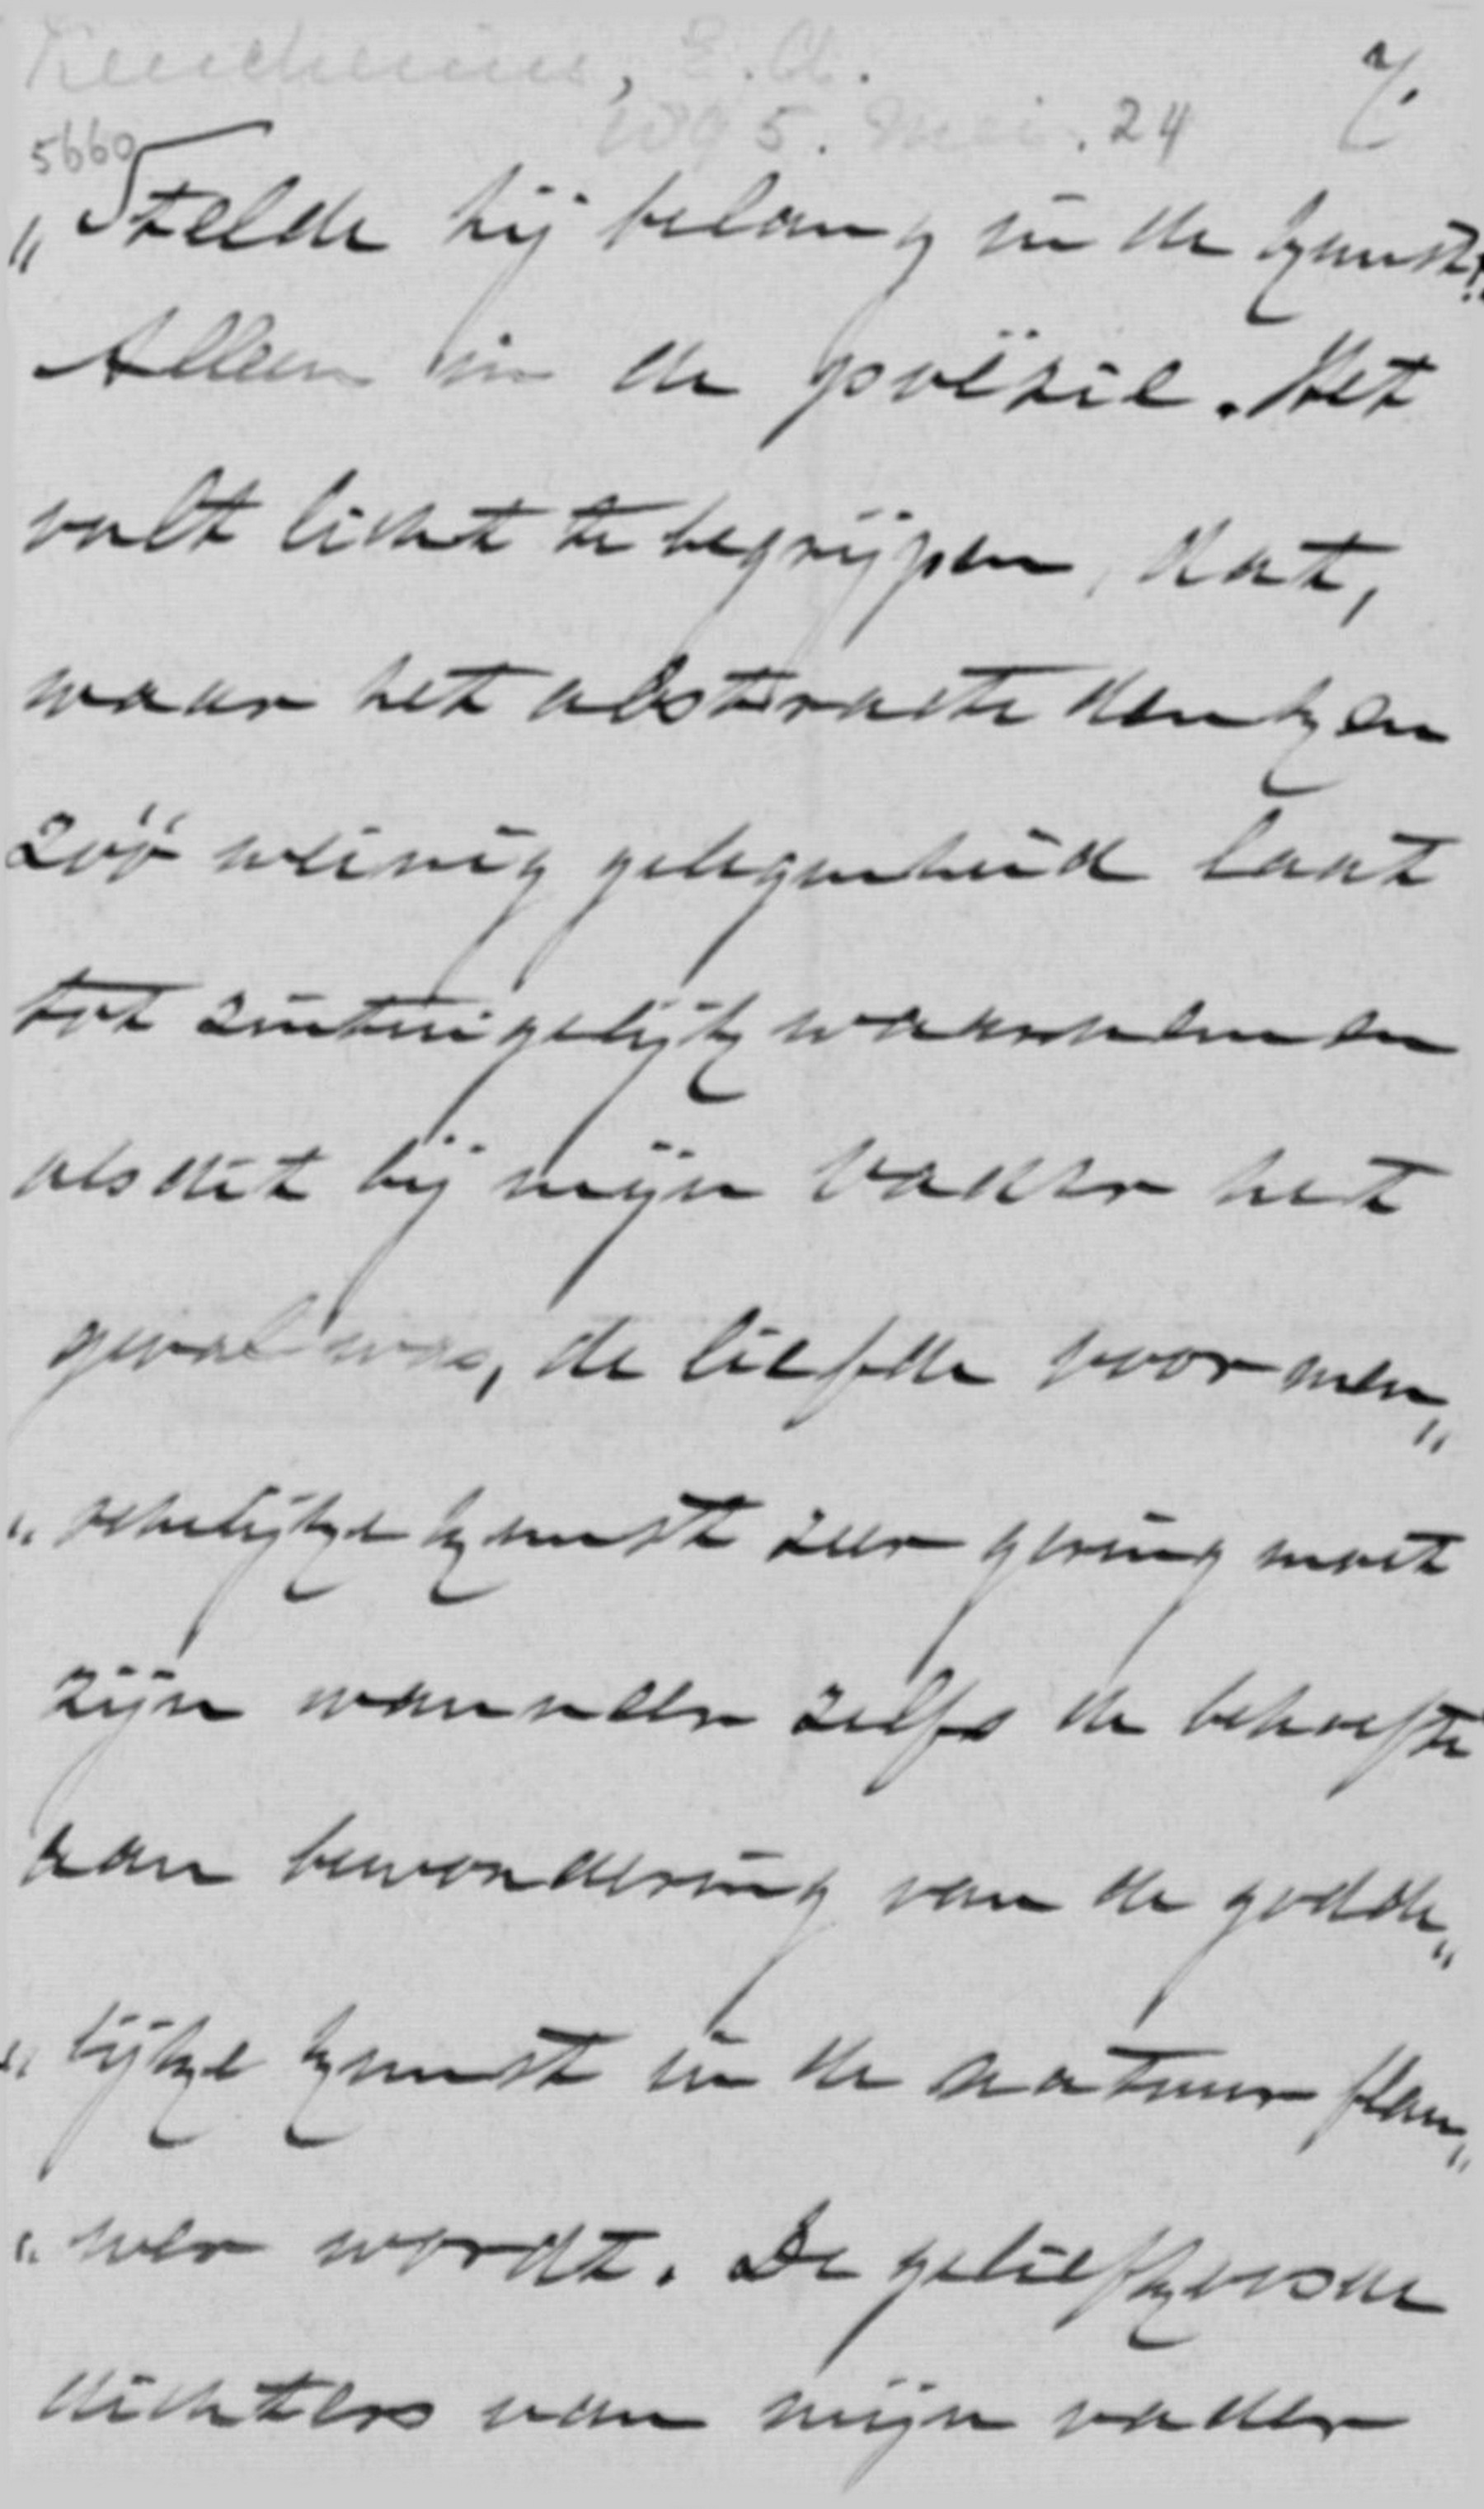 Keuchenius, E. Ch. 7.
5. Mei. 24
5660
„Stelde hij belang in de kunst?
Alleen in de poëzie. Het
valt licht te begrijpen, dat,
waar het abstracte denken
zóó weinig gelegenheid laat
tot zintuigelijk waarnemen
als dit bij mijn vader het
geval was, de liefde voor men„
„schelijke kunst zeer gering moet
zijn wanneer zelfs de behoefte
aan bewondering van de godde„
„lijke kunst in de natuur flau„
„wer wordt. De geliefkoosde
dichters van mijn vader